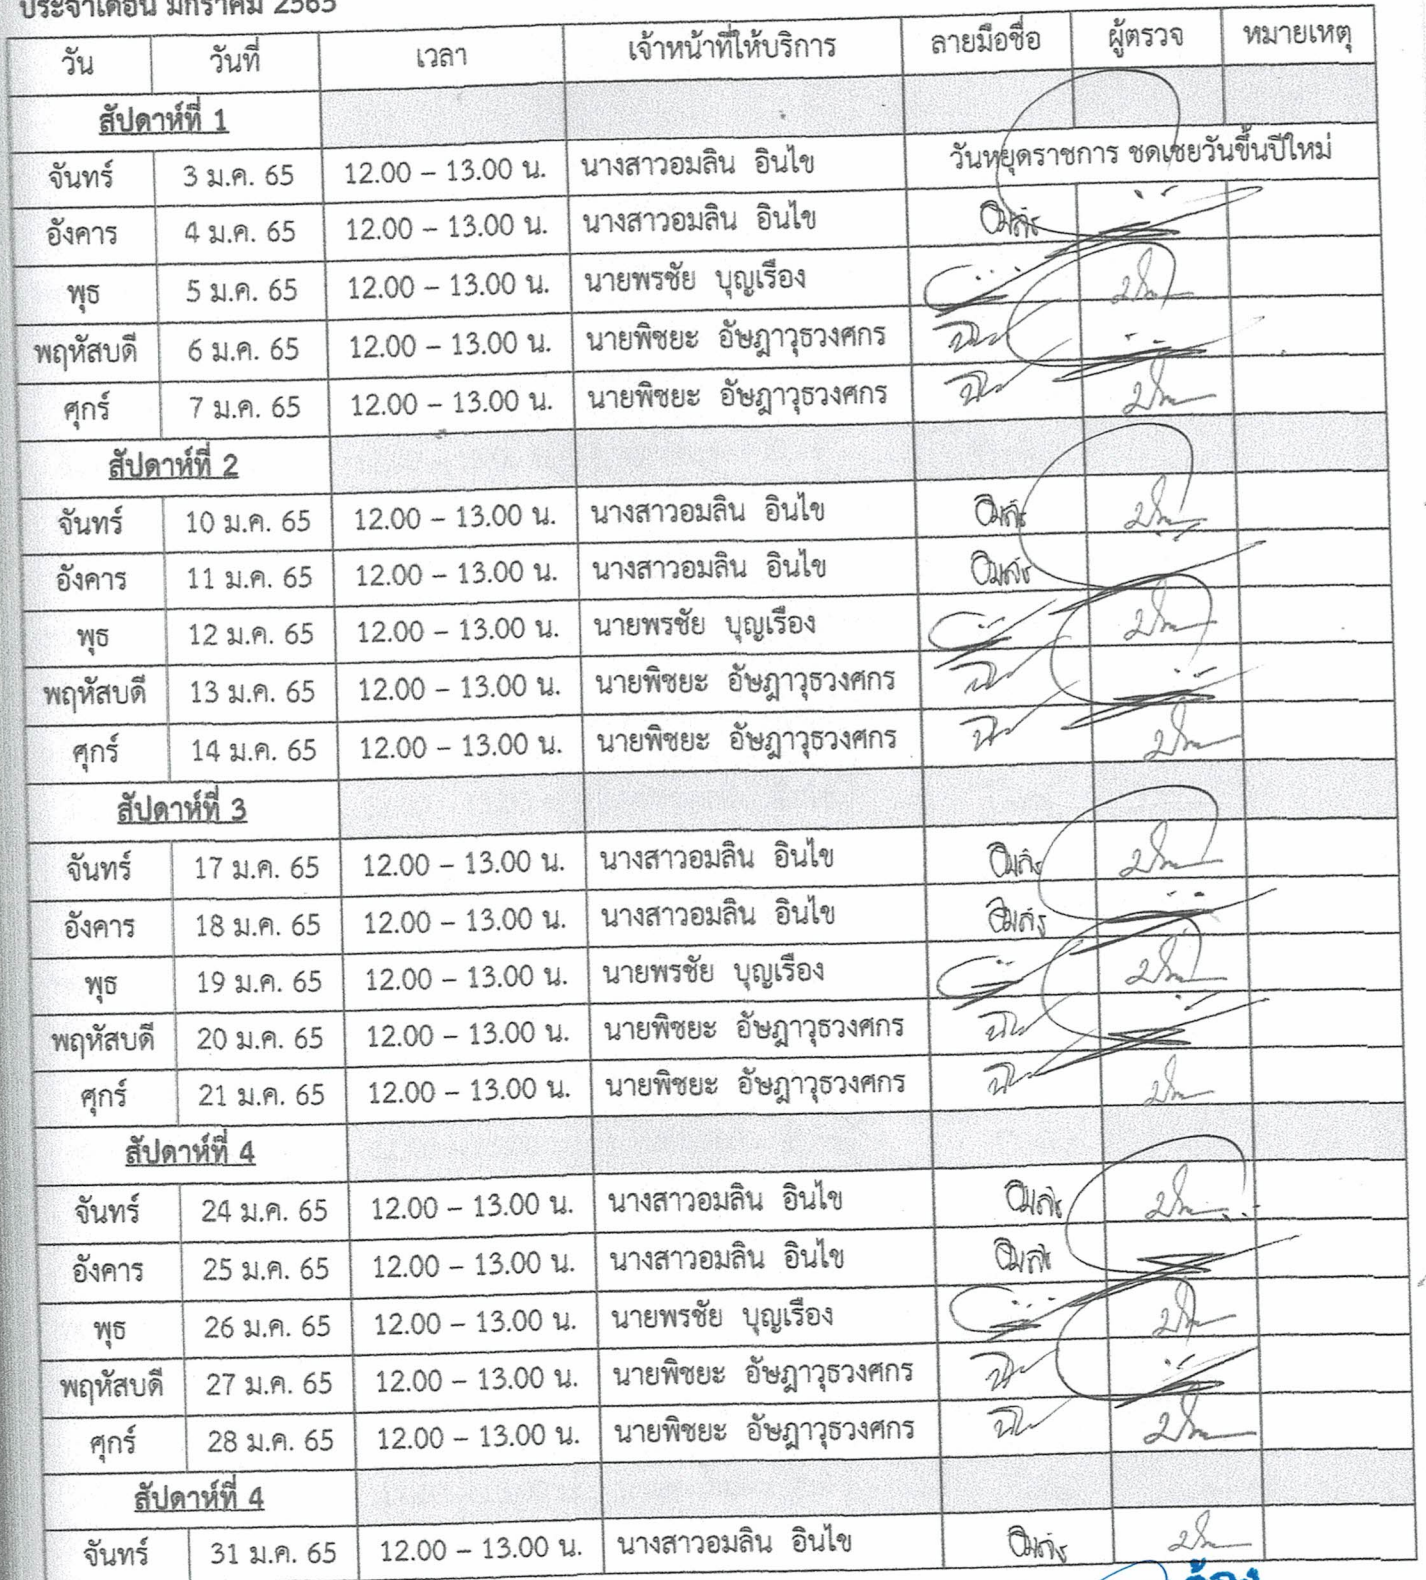 ประจำเดือน มกราคม 2565
วัน วันที่ เวลา เจ้าหน้าที่ให้บริการ ลายมือชื่อ ผู้ตรวจ หมายเหตุ
สัปดาห์ที่ 1
จันทร์ 3 ม.ค. 65 12.00 – 13.00 น. นางสาวอมลิน อินไข วันหยุดราชการ ชดเชยวันขึ้นปีใหม่
อังคาร 4 ม.ค. 65 12.00 – 13.00 น. นางสาวอมลิน อินไข
พุธ 5 ม.ค. 65 12.00 – 13.00 น. นายพรชัย บุญเรือง
พฤหัสบดี 6 ม.ค. 65 12.00 – 13.00 น. นายพิชยะ อัษฎาวุธวงศกร
ศุกร์ 7 ม.ค. 65 12.00 – 13.00 น. นายพิชยะ อัษฎาวุธวงศกร
สัปดาห์ที่ 2
จันทร์ 10 ม.ค. 65 12.00 – 13.00 น. นางสาวอมลิน อินไข
อังคาร 11 ม.ค. 65 12.00 – 13.00 น. นางสาวอมลิน อินไข
พุธ 12 ม.ค. 65 12.00 – 13.00 น. นายพรชัย บุญเรือง
พฤหัสบดี 13 ม.ค. 65 12.00 – 13.00 น. นายพิชยะ อัษฎาวุธวงศกร
ศุกร์ 14 ม.ค. 65 12.00 – 13.00 น. นายพิชยะ อัษฎาวุธวงศกร
สัปดาห์ที่ 3
จันทร์ 17 ม.ค. 65 12.00 – 13.00 น. นางสาวอมลิน อินไข
อังคาร 18 ม.ค. 65 12.00 – 13.00 น. นางสาวอมลิน อินไข
พุธ 19 ม.ค. 65 12.00 – 13.00 น. นายพรชัย บุญเรือง
พฤหัสบดี 20 ม.ค. 65 12.00 – 13.00 น. นายพิชยะ อัษฎาวุธวงศกร
ศุกร์ 21 ม.ค. 65 12.00 – 13.00 น. นายพิชยะ อัษฎาวุธวงศกร
สัปดาห์ที่ 4
จันทร์ 24 ม.ค. 65 12.00 – 13.00 น. นางสาวอมลิน อินไข
อังคาร 25 ม.ค. 65 12.00 – 13.00 น. นางสาวอมลิน อินไข
พุธ 26 ม.ค. 65 12.00 – 13.00 น. นายพรชัย บุญเรือง
พฤหัสบดี 27 ม.ค. 65 12.00 – 13.00 น. นายพิชยะ อัษฎาวุธวงศกร
ศุกร์ 28 ม.ค. 65 12.00 – 13.00 น. นายพิชยะ อัษฎาวุธวงศกร
สัปดาห์ที่ 4
จันทร์ 31 ม.ค. 65 12.00 – 13.00 น. นางสาวอมลิน อินไข